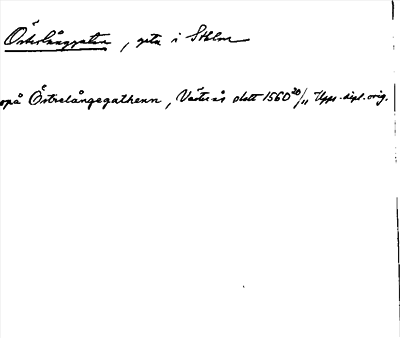 Österlånggatan, gata i Sthlm
opå Östrelångegathenn, Västerås datt 1560 20/11 Upps. dipl. orig.